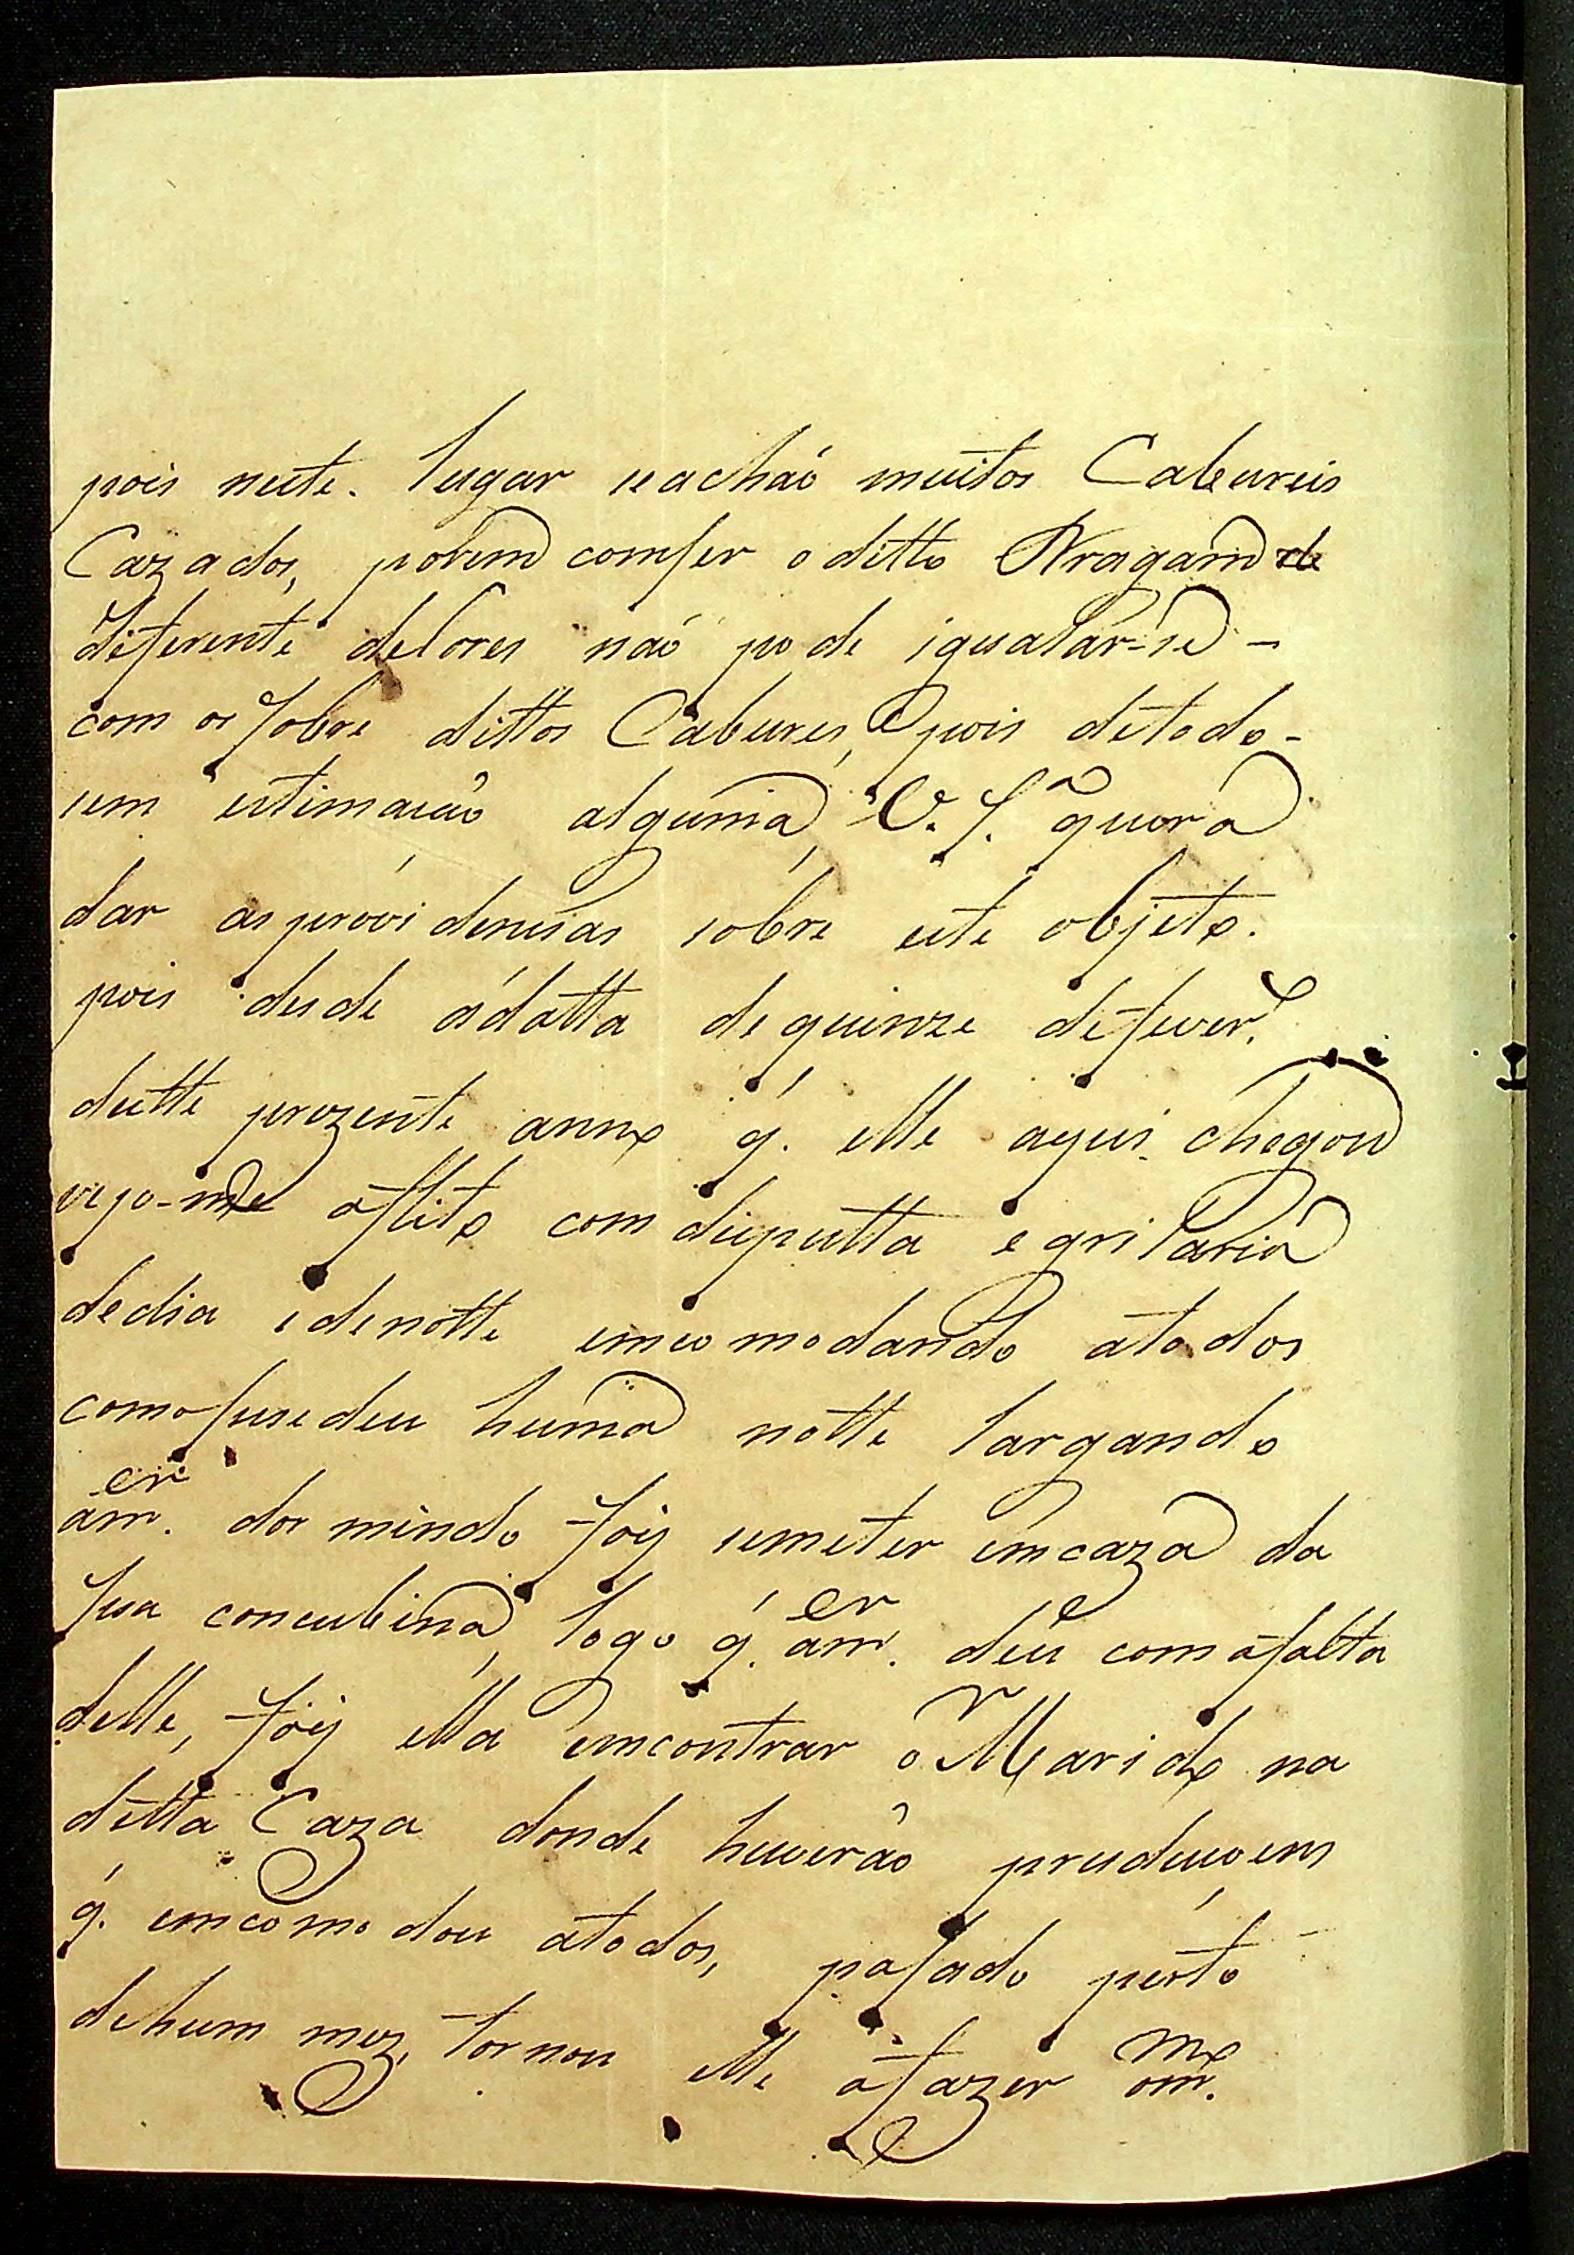 pois neste. lugar se achão muitos Cabureis
Cazados, porem com ser o ditto Aragam de
diferente de Cores não pode igualar-se -
com os sobre dittos Cabures, e pois de todo -
sem estimacão alguma, V. S. quera
dar as providensias sobre este objeto.
pois desde ádatta de quinze de fever.
deste prezente anno q. elle aqui chegou
vejo-me aflito com disputta e gritaria
de dia e de notte emcomodando atodos
como susedeu huma notte largando
a m.er dormindo foy se meter em caza da
sua concubina, logo q. a m.er deu com afalta
delle, foy ella emcontrar o Marido na
detta Caza donde huverão
q. emcomodou atodos, pasado perto
de hum mez, tornou elle afazer o m.mo